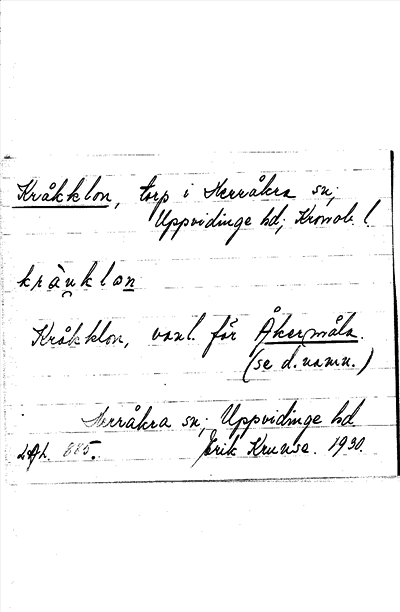 Kråkklon, torp i Herråkra sn;
Uppvidinge hd; Kronob. l.
kràuklon
Kråkklon, vanl. för Åkermåla.
(se d. namn.)
Herråkra sn; Uppvidinge hd
885. Erik Krunse. 1930.